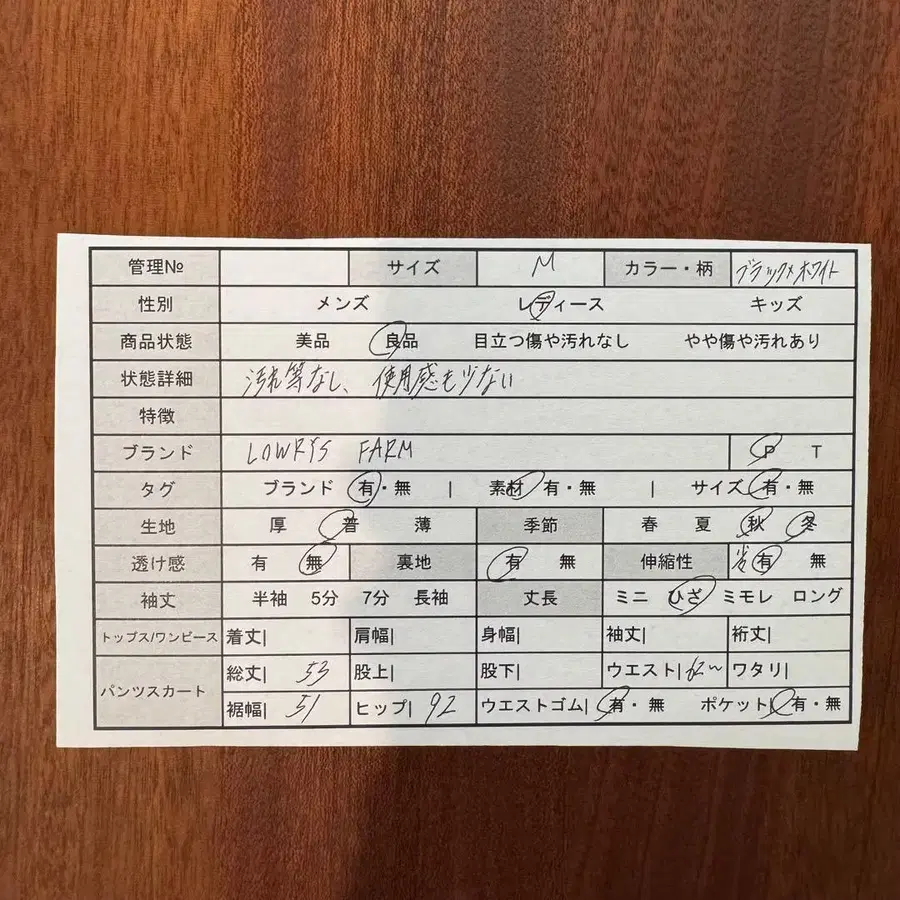 管理№ サイズ M カラー・柄 ブラック×ホワイト
性別 メンズ レディース キッズ
商品状態 美品 良品 目立つ傷や汚れなし やや傷や汚れあり
状態詳細 汚れ等なし、使用感も少ない
特徴
ブランド LOWRYS FARM P T
タグ ブランド 有・無 | 素材 有・無 | サイズ 有・無
生地 厚 普 薄 季節 春 夏 秋 冬
透け感 有 無 裏地 有 無 伸縮性 有 無
袖丈 半袖 5分 7分 長袖 丈長 ミニ ひざ ミモレ ロング
トップス/ワンピース 着丈| 肩幅| 身幅| 袖丈| 裄丈|
パンツスカート 総丈| 53 股上| 股下| ウエスト| 62〜 ワタリ|
裾幅| 51 ヒップ| 92 ウエストゴム| 有・無 ポケット| 有・無